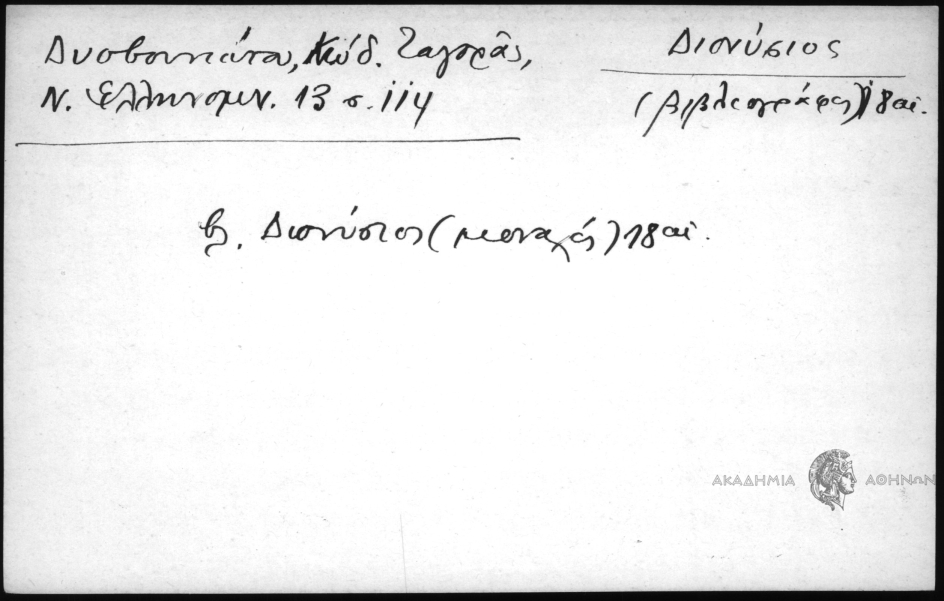 Δυοβουνιώτου, Κώδ. Ζαγορᾶς,
Ν. Ἑλληνομν. 13 σ. 114
Διονύσιος
(βιβλιογράφος) 18 αἰ.
βλ. Διονύσιος (μοναχός) 18 αἰ.
ΑΚΑΔΗΜΙΑ ΑΘΗΝΩΝ